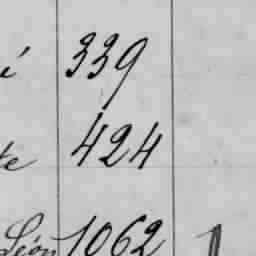 é 339
te 424
Léon 1062